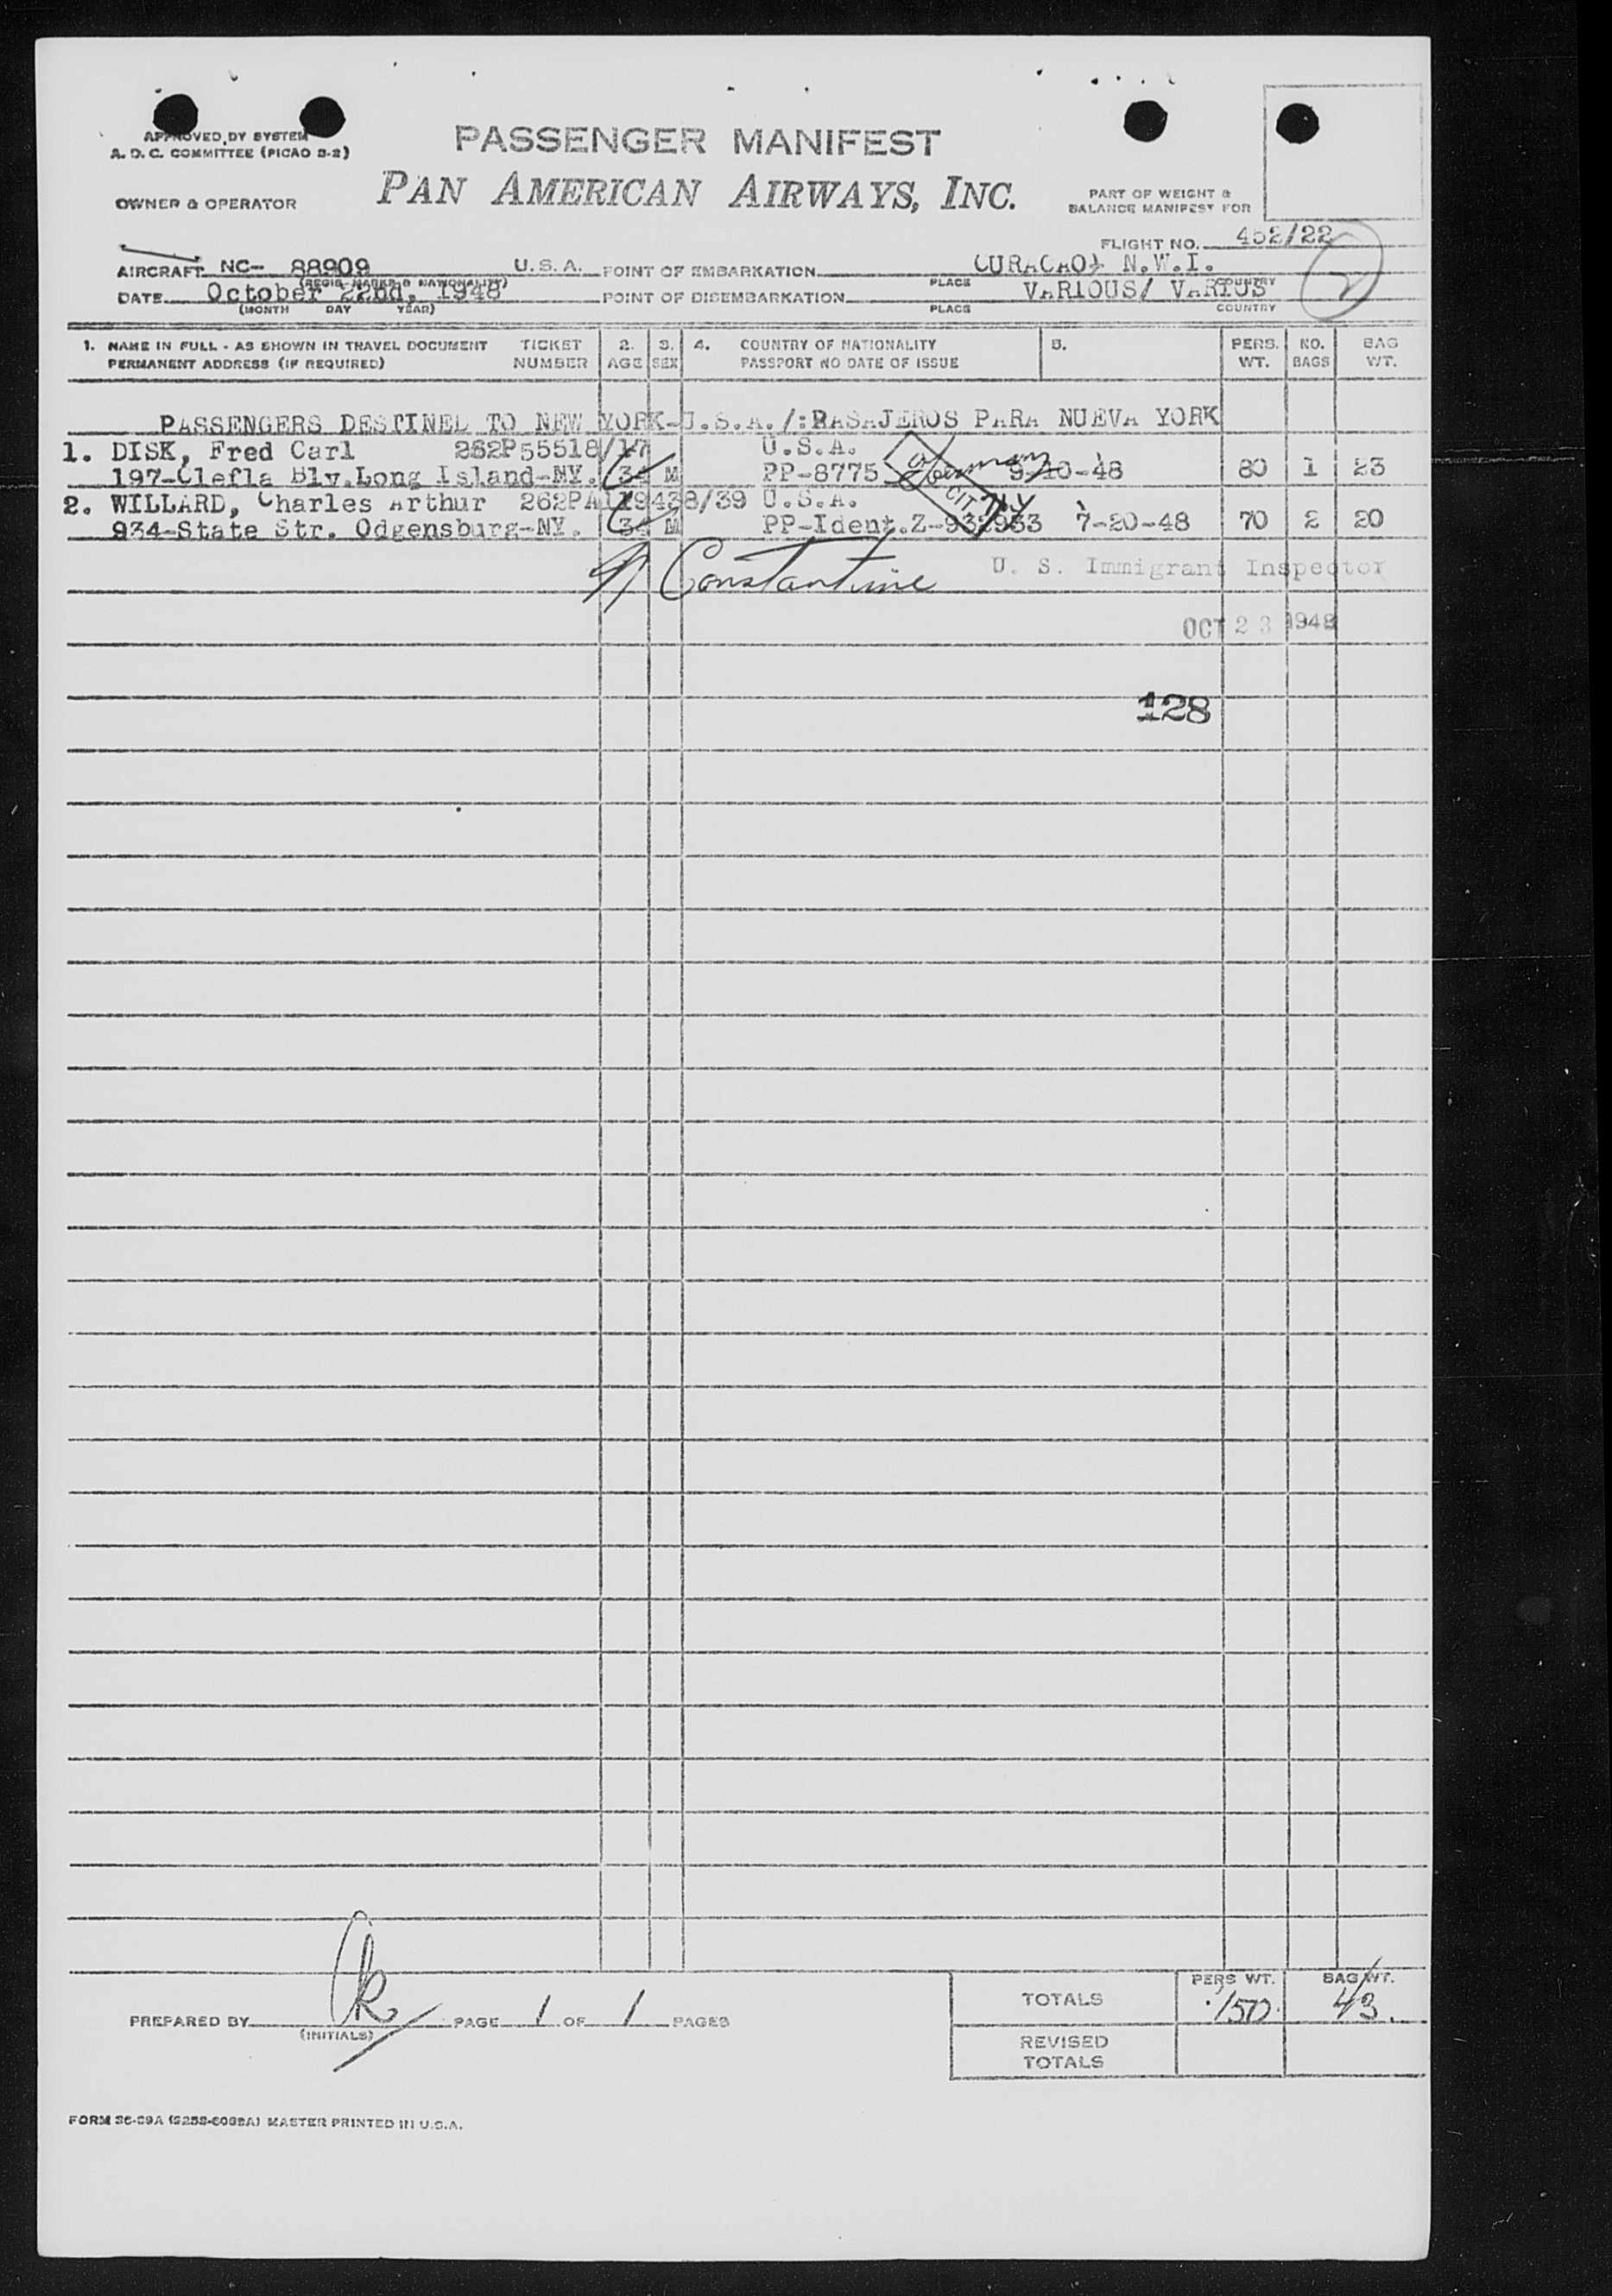 APPROVED BY SYSTEM
A. D. C. COMMITTEE (PICAO S-2)
PASSENGER MANIFEST
PAN AMERICAN AIRWAYS, INC.
OWNER & OPERATOR
PART OF WEIGHT &
BALANCE MANIFEST FOR
FLIGHT NO. 452/22
AIRCRAFT NC- 88909 U.S.A. POINT OF EMBARKATION CURACAO, N.W.I.
(REGIS. MARKS & NATIONALITY) PLACE COUNTRY
DATE October 22nd, 1948 POINT OF DISEMBARKATION VARIOUS/ VARIUS
(MONTH DAY YEAR) PLACE COUNTRY
1. NAME IN FULL - AS SHOWN IN TRAVEL DOCUMENT TICKET 2. 3. 4. COUNTRY OF NATIONALITY 5. PERS. NO. BAG
PERMANENT ADDRESS (IF REQUIRED) NUMBER AGE SEX PASSPORT NO DATE OF ISSUE WT. BAGS WT.
PASSENGERS DESTINED TO NEW YORK-U.S.A./:PASAJEROS PARA NUEVA YORK
1. DISK, Fred Carl 262P55518/17 U.S.A.
197-Clefla Blv.Long Island-NY. M PP-8775 Germany 9-10-48 80 1 23
2. WILLARD, Charles Arthur 262PA119438/39 U.S.A. CIT
934-State Str. Odgensburg-NY. M PP-Ident.Z-932933 7-20-48 70 2 20
Constantine U. S. Immigrant Inspector
OCT 23 1948
128
PREPARED BY PAGE 1 OF 1 PAGES
(INITIALS)
PERS WT. BAG WT.
TOTALS 150 43.
REVISED
TOTALS
MASTER PRINTED IN U.S.A.